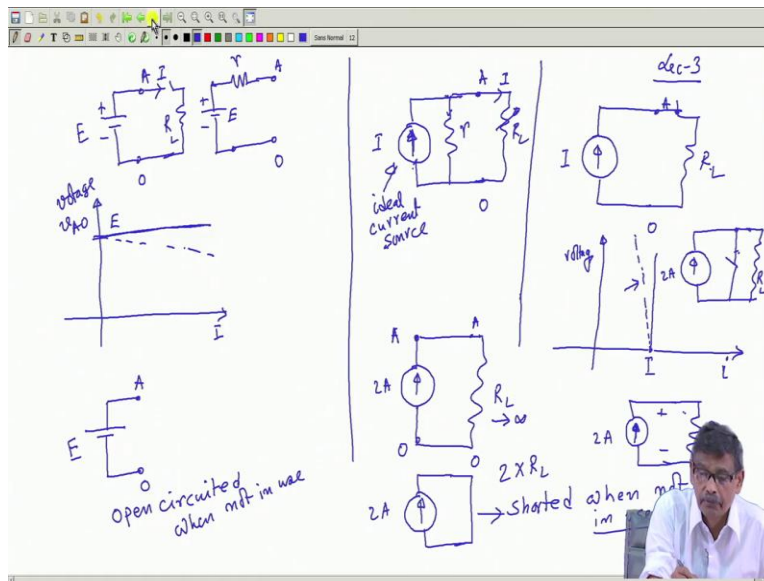 Sans Normal 12
Lec-3
A I
r
A
E
+
-
R_L
O
+
-
E
O
voltage
v_AO
E
I
A
E
O
open circuited
when not in use
A I
I
r
R_L
ideal
current
source
O
A A
2A
R_L
→∞
O O
2 × R_L
2A
→ shorted when not
in
A
I
R_L
O
voltage
2A
R_L
I
i
2A
+
-